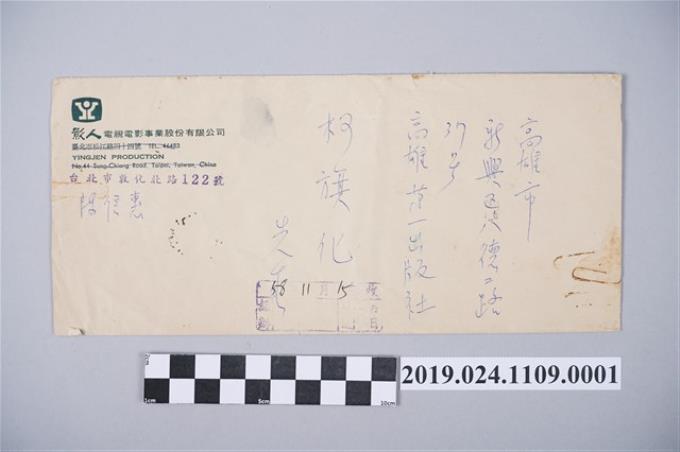 影人電視電影事業股份有限公司
臺北市松江路四十四號 TEL. 44453
YINGJEN PRODUCTION
No.44 Sung-Chiang Road, Taipei, Taiwan, China
台北市敦化北路122號
高雄市
新興區德二路
37号
高雄第一出版社
柯旗化
先生
58 11月 15
2019.024.1109.0001
1cm
5cm
10cm